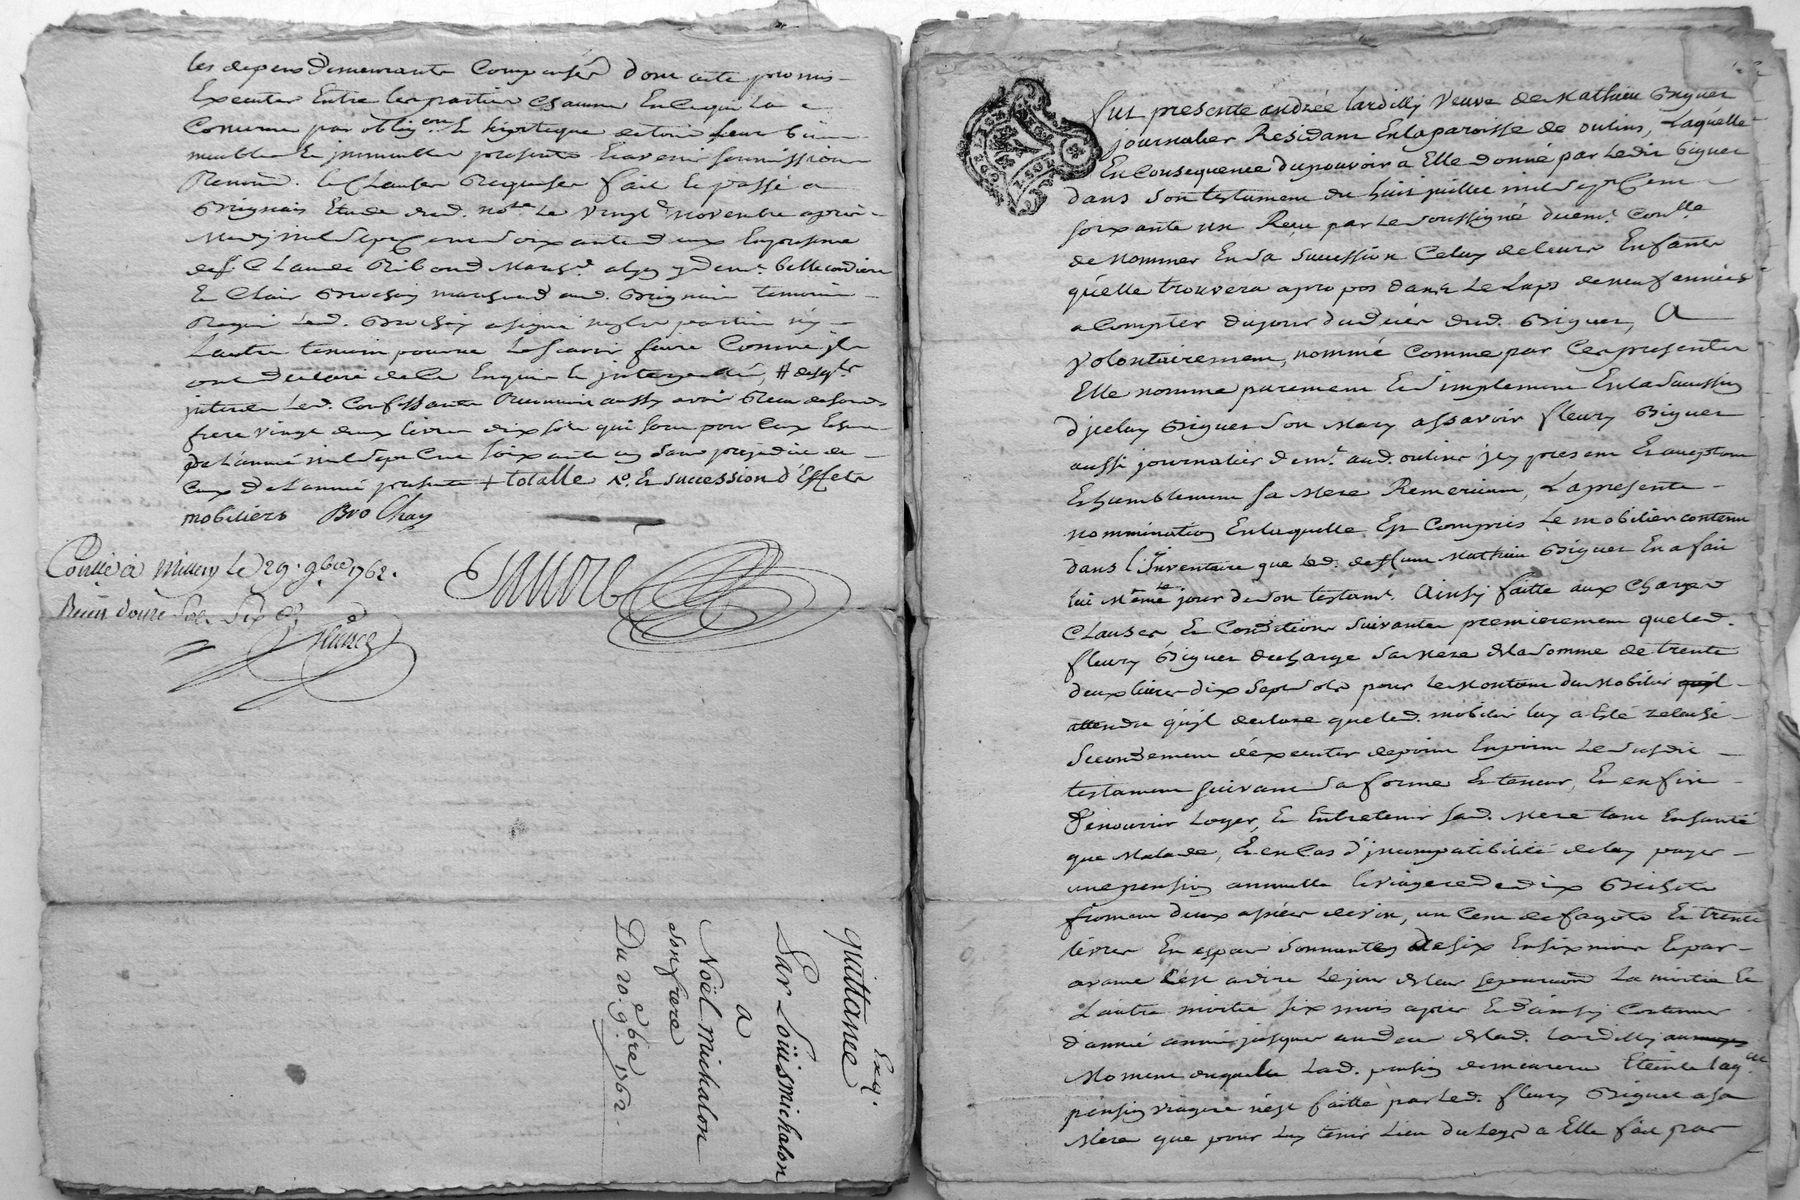 les depens demeurants compensés dont acte promis
Executer Entre les parties chacune En ce qui la
Concerne par oblig.on & hipoteque de tous leurs biens
meubles & immeubles presents & avenir soumissions
Renond. & Clauses Requises fait & passé a
Brignais Etude dud. no.re le vingt novembre après
Midy mil sept Cent soixante deux En presence
de s.r Claude Riboud
& Clair Brochay marchand aud. Brignais temoins
Requis led. Brochay a signé non les parties ny
L'autre temoin pour ne le scavoir faire Comme ils
ont declaré de ce Enquis & interpellés, #
frere vingt deux livres dix sols qui sont pour
de L'année mil sept Cent soixante un sans prejudice de
Ceux de L'année presente + totalle #o. & succession d'Effets
mobiliers BroChay
Conllé à Millery le 29. 9bre 1762.
Reçu douze sols six d.
quittance
Exq.
Par Loüis michalon
a
Noël Michalon
son frere
Du 20.e 9bre 1762.
Fut presente andrée Lardilly veuve de Mathieu Biguet
journalier Residant En la paroisse de oulins, Laquelle
En Consequence du pouvoir a Elle donné par Ledit Biguet
dans son testament du huit juillet mil sept Cent
soixante un Reçu par Le soussigné duem.t Con.lle
de nommer En sa succession Celuy de leurs Enfants
qu'elle trouvera apropos dans Le Laps de neuf années
a Compter du jour du decés dud. Biguet, A
volontairement, nommé comme par Ces presentes
Elle nomme purement & simplement En la succession
d'jceluy Biguet son Mary assavoir fleury Biguet
aussi journalier dem.t aud. oulins jcy present & acceptant
& humblement sa Mere Remerciant, La presente
nommination En laquelle Est Compris Le mobilier contenu
dans L'Inventaire que led. deffunt Mathieu Biguet En a fait
lui Même le jour de son testam.t. Ainsy faitte aux Charges
Clauses & Conditions suivantes premierement que led.
fleury Biguet decharge sa Mere de la somme de trente
deux livres dix sept sols pour le Montant du Mobilier
attendu qu'il declare que led. mobilier luy a Esté relaché
Secondement d'executer de point En point Le susdit
testament suivant sa forme & teneur, & enfin
de nourrir Loger, & Entretenir sad. Mere tant En santé
que Malade, & en Cas d'jncompatibilité de luy payer
une pension annuelle & viagere de dix Bichets
froment deux asnées de vin, un Cent de fagots & trente
livres En espece sonnantes de six En six mois & par
avance C'est a dire Le jour de leur separation La moitié &
L'autre moitié six mois après & d'ainsy Continuer
d'année En année jusques au deces de lad. Lardilly
Moment auquel Lad. pension demeurera Eteinte laq.lle
pension viagere n'est faitte par Led. fleury Biguet a sa
Mere que pour Luy tenir Lieu du Legs a Elle fait par